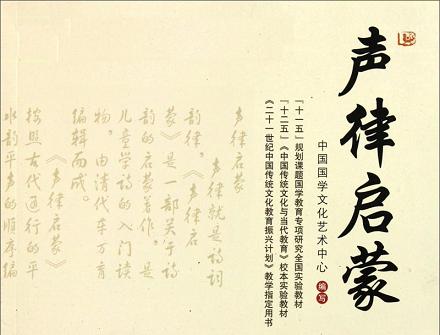 声律启蒙
中国国学文化艺术中心 编写
「十一五」规划课题国学教育专项研究全国实验教材
「十二五」《中国传统文化与当代教育》校本实验教材
《二十一世纪中国传统文化教育振兴计划》教学指定用书
声律启蒙
声律就是诗词
韵律。《声律启
蒙》是一部关于诗
韵的启蒙著作。是
儿童学诗的入门读
物。由清代车万育
编辑而成。
《声律启蒙》
按照古代通行的平
水韵平声的顺序编